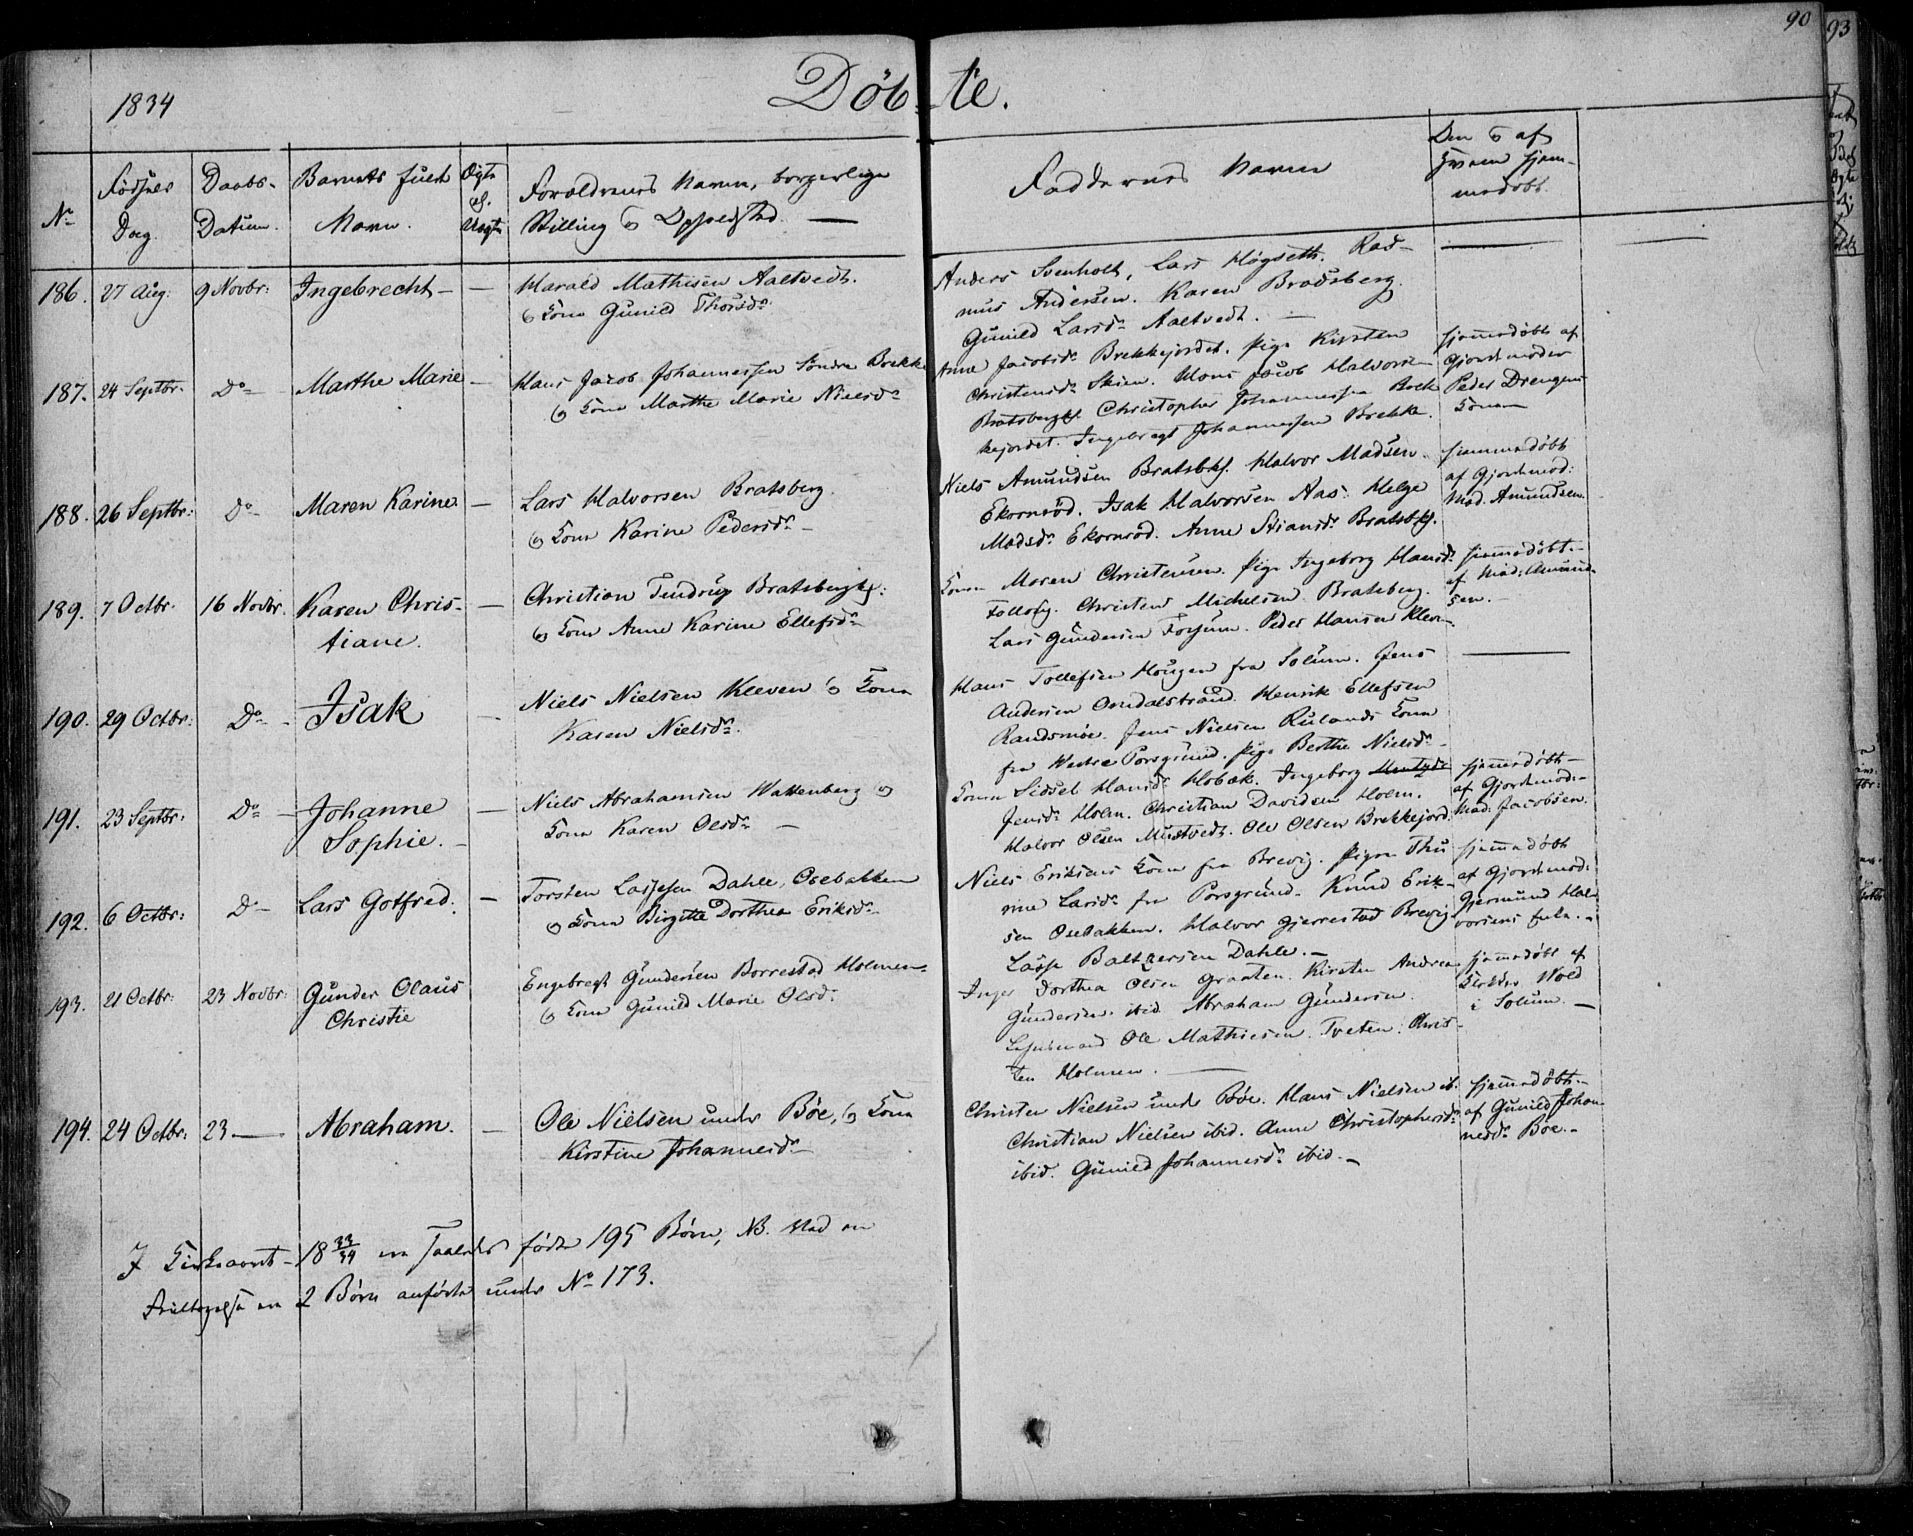 90
93
1834
Døb-te.
No
Fødsels Dag.
Daabs-Datum.
Barnets fulde Navn.
Ægte el. Uægte
Forældrenes Navn, borgerlige Stilling og Opholdsted. —
Faddernes Navne
Den og af hvem hjem-medøbt.
186. 27 Aug: 9 Novbr: Ingebrecht — —
Harald Mathisen Aaltvedt.
og Kone Gunild Thorsdr
Anders Svenholt, Lars Høgseth. Ras-
mus Andersen. Karen Bradsberg.
Gunild Larsdr Aaltvedt. —
187. 24 Septbr. Do Marthe Marie —
Hans Jacob Johannessen Søndre Brekke
og Kone Marthe Marie Nielsdr
Anne Jacobsdr Brekkejordet. Pige Kirsten
Christensdr Skien. Hans Jacob Halvorsen
Bratsbergkl. Christopher Johannessen Brek
kejordet. Ingebregt Johannessen Brekke.
hjemmedøbt af
Gjordemoder
Peder Drengens
Kone
188. 26 Septbr: Do Maren Karine —
Lars Halvorsen Bratsberg.
og Kone Karine Pedersdr —
Niels Amundsen Bratsbkl. Halvor Madsen
Ekornrød. Isak Halvorsen Aas. Helge
Madsdr Ekornrød. Anne Stiansdr Bratsbkl.
hjemmedøbt
af Gjordemod:
Mad. Amundsen.
189. 7 Octbr. 16 Novbr. Karen Chris-
tiane. —
Christian Tindrup Bratsbergkl:
og Kone Anne Karine Ellefsdr
Konen Maren Christensen. Pige Ingeborg Hansdr
Follaug. Christen Michelsen Bratsberg.
Lars Gundersen Forsum. Peder Hansen Kleven.
hjemmedøbt.
af Mad: Amund-
sen. —
190. 29 Octbr: Do — Isak —
Niels Nielsen Kleven og Kone
Karen Nielsdr.
Hans Tollefsen Hougen fra Solum. Jens
Andersen Omdalstrand. Henrik Ellefsen
Randsmoe. Jens Nielsen Rulands Kone
fra Vestre Porsgrund. Pige Berthe Nielsdr
191. 23 Septbr: Do — Johanne
Sophie. —
Niels Abrahamsen Vattenberg og
Kone Karen Olsdr —
Konen Sidsel Hansdr Hobæk. Ingeborg
Jensdr Holm. Christian Davidsen Holm.
Halvor Olsen Mustvedt. Ole Olsen Brekkejord.
hjemmedøbt
af Gjordemod:
Mad: Jacobsen.
192. 6 Octbr: Do — Lars Gotfred. —
Torsten Lassesen Dahle, Osebakken
og Kone Birgitte Dorthea Eriksdr
Niels Eriksens Kone fra Brevig. Pigen Thu
rine Larsdr fra Porsgrund. Knud Erik-
sen Osebakken. Halvor Gjerrestad Brevig
Lasse Baltzersen Dahle. —
hjemmedøbt
af Gjordemod:
Gjermund Hal
vorsens Enke. —
193. 21 Octbr: 23 Novbr: Gunder Olaus
Christie
Engebregt Gundersen Borrestad Holmen
og Kone Gunild Marie Olsdr.
Inger Dorthea Olsen Graaten. Kirsten Andrea
Gundersen. ibid. Abraham Gundersen.
Ole Mathiesen Tveten. Chris-
ten Holmen. —
hjemmedøbt af
Klokker Wold
i Solum. —
194. 24 Octbr: 23 — Abraham. —
Ole Nielsen under Bøe, og Kone
Kirstine Johannesdr —
Christen Nielsen under Bøe. Hans Nielsen ib.
Christian Nielsen ibid. Anne Christophersdr
ibid. Gunild Johannesdr ibid. —
hjemmedøbt.
af Gunild Johan
nesdr Bøe. —
I Kirkeaaret 18 33/34 ere saaledes fødte 195 Børn, NB. ved en
ere 2 Børn anførte under No 173.